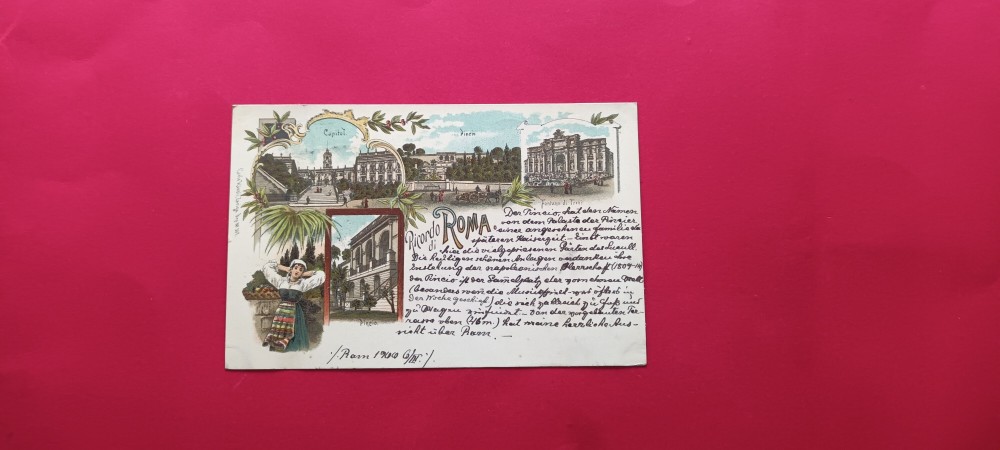 Capitol.
Pincio
Fontana di Trevi
Ricordo
di
ROMA
Der Pincio, hat den Namen
von dem Palaste der Pincier
einer angesehenen Familie der
späteren Kaiserzeit – Einst waren
hier die vielgepriesenen Gärten des Lucull.
Die heutigen schönen Anlagen verdanken ihre
Entstehung der napoleonischen Herrschaft (1809-14)
der Pincio ist der Sammelplatz der vornehmen Welt
(besonders wenn die Musik spielt – was öfters in
der Woche geschieht) die sich zalreich zu Fuß und
zu Wagen einfindet – Von der vorgebauten Ter-
rasse oben (46m.) hat meine herrliche Aus-
sicht über Rom. –
:/. Rom 1900 6/III. /.